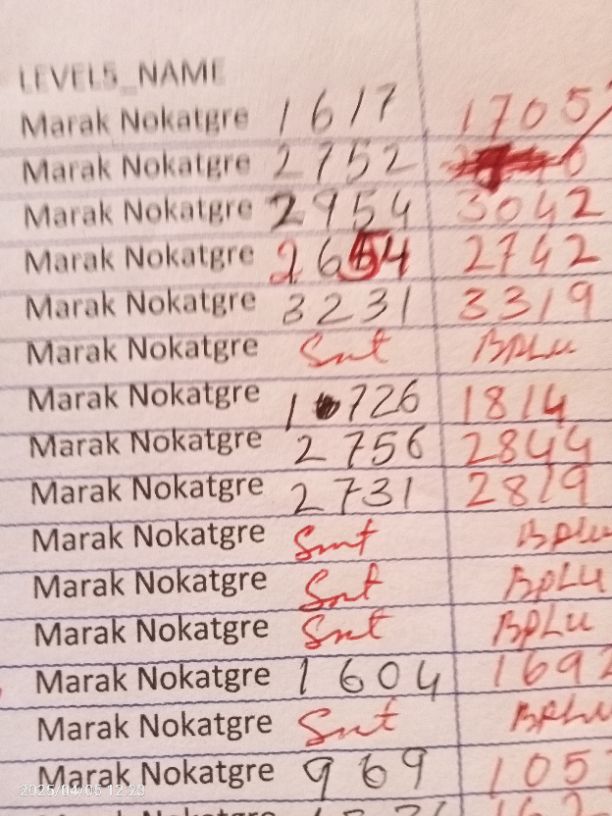 LEVEL5_NAME
Marak Nokatgre 1617 1705
Marak Nokatgre 2752
Marak Nokatgre 2954 3042
Marak Nokatgre 2654 2742
Marak Nokatgre 3231 3319
Marak Nokatgre Smt BPLU
Marak Nokatgre 1726 1814
Marak Nokatgre 2756 2844
Marak Nokatgre 2731 2819
Marak Nokatgre Smt BPLU
Marak Nokatgre Smt BPLU
Marak Nokatgre Smt BPLU
Marak Nokatgre 1604 1692
Marak Nokatgre Smt BPLU
Marak Nokatgre 969 105
2025/04/05 12:20